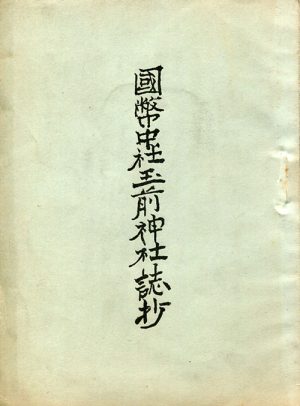 國幣中社玉前神社誌抄